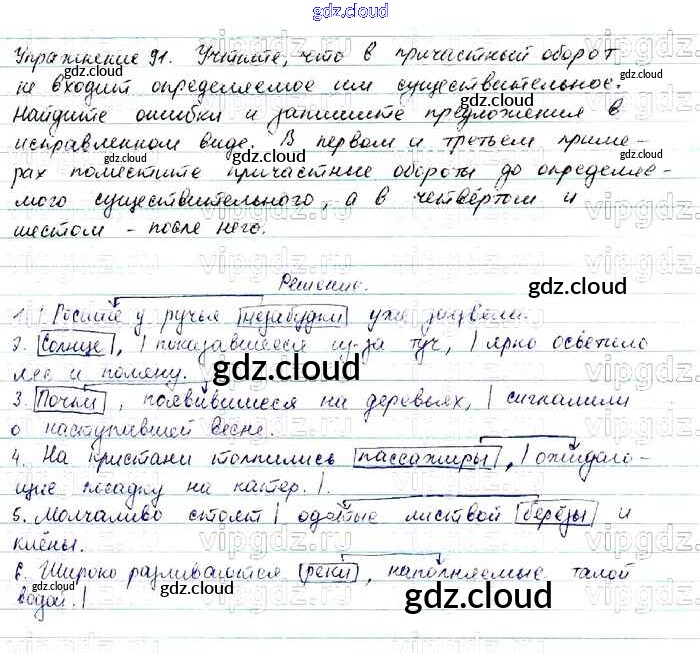 gdz.cloud
Упражнение 91. Учтите, что в причастный оборот
не входит определяемое им существительное.
gdz.cloud
Найдите ошибки и запишите предложения в
исправленном виде. В первом и третьем приме-
gdz.cloud gdz.cloud
рах поместите причастные обороты до определяе-
мого существительного, а в четвёртом и
gdz.cloud
шестом - после него.
Решение.
gdz.cloud
1. | Росшие у ручья незабудки уже зацвели.
2. Солнце, | показавшееся из-за туч, | ярко осветило
лес и поляну.
gdz.cloud
3. Почки, появившиеся на деревьях, | сигналили
о наступившей весне.
4. На пристани толпились пассажиры, | ожидаю-
щие посадку на катер. |
5. Молчаливо стоят | одетые листвой берёзы и
клёны.
6. Широко разливаются реки, наполняемые талой
водой. |
gdz.cloud
gdz.cloud